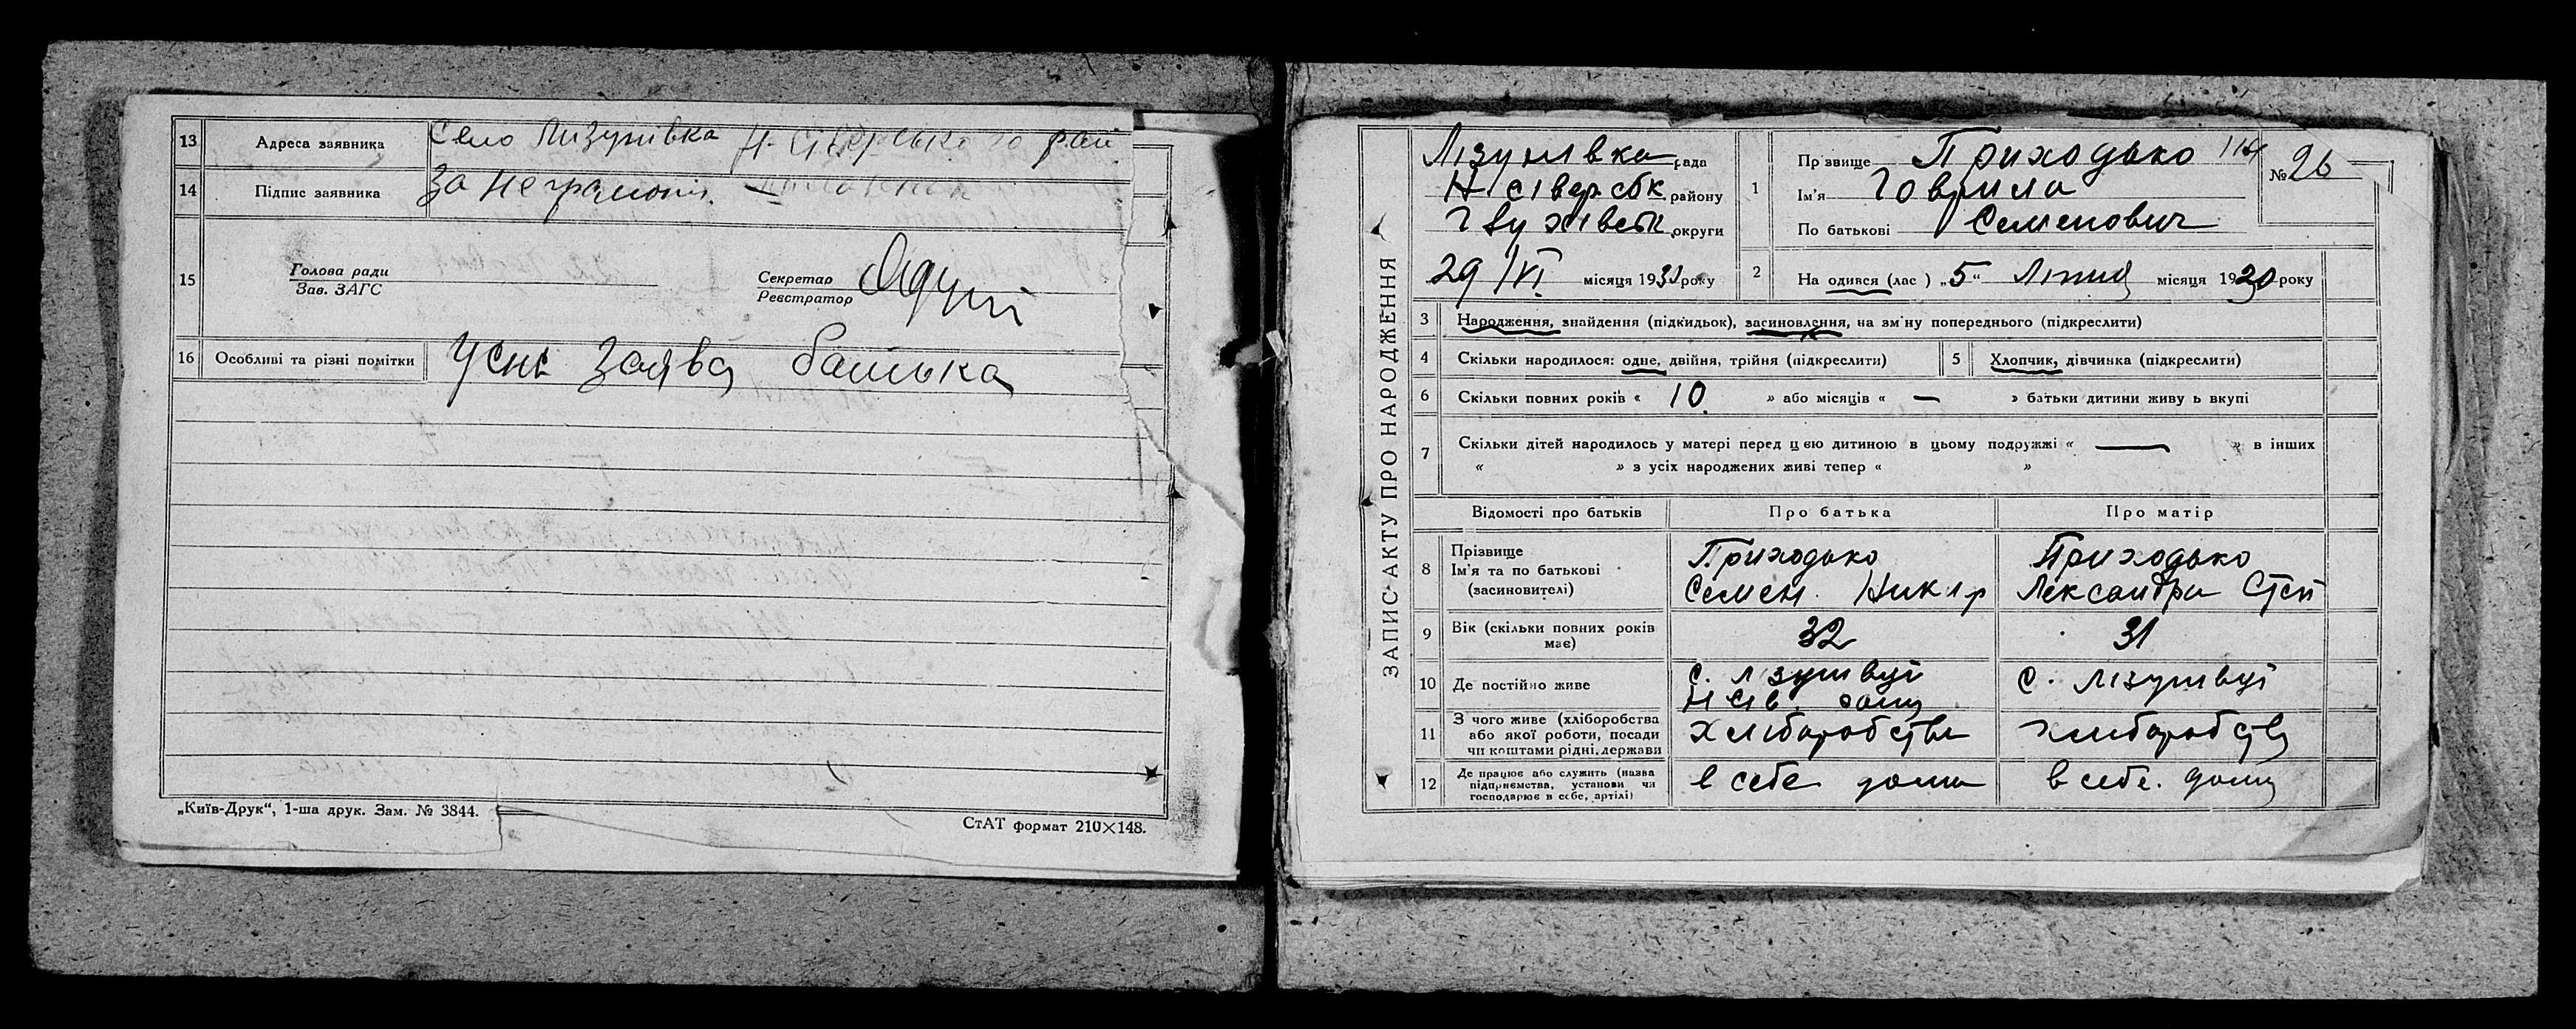 13 Адреса заявника Село Лизунівка Н-Сіверського рай
14 Підпис заявника За неграмотн.
15 Голова ради
Зав. ЗАГС
Секретар
Реєстратор
16 Особливі та різні помітки Усні заява батька
„Київ-Друк“, 1-ша друк. Зам. № 3844.
СтАТ формат 210×148.
ЗАПИС АКТУ ПРО НАРОДЖЕННЯ
Лізунівка рада
Н Сіверсбк району
округи
29/VI місяця 1930 року
1 Прізвище Приходько
Ім'я Говрило
По батькові Семенович
№ 26
2 На одився (лас ) „5“ Липня місяця 1920 року
3 Народження, знайдення (підкидьок), засиновлення, на зміну попереднього (підкреслити)
4 Скільки народилося: одне, двійня, трійня (підкреслити)
5 Хлопчик, дівчинка (підкреслити)
6 Скільки повних років « 10. » або місяців « — » батьки дитини живу ь вкупі
7 Скільки дітей народилось у матері перед цією дитиною в цьому подружжі « — » в інших
« » з усіх народжених живі тепер « »
Відомості про батьків Про батька Про матір
8 Прізвище Приходько Приходько
Ім'я та по батькові Семен Никир Лександра Степ
(засиновителі)
9 Вік (скільки повних років має) 32 31
10 Де постійно живе с. Лізунівці с. Лізунівці
11 З чого живе (хліборобства або якої роботи, посади чи коштами рідні, держави Хліборобства хліборобств
12 Де працює або служить (назва підприємства, установи чи господарює в себе, артілі) в себе дома в себе. дому